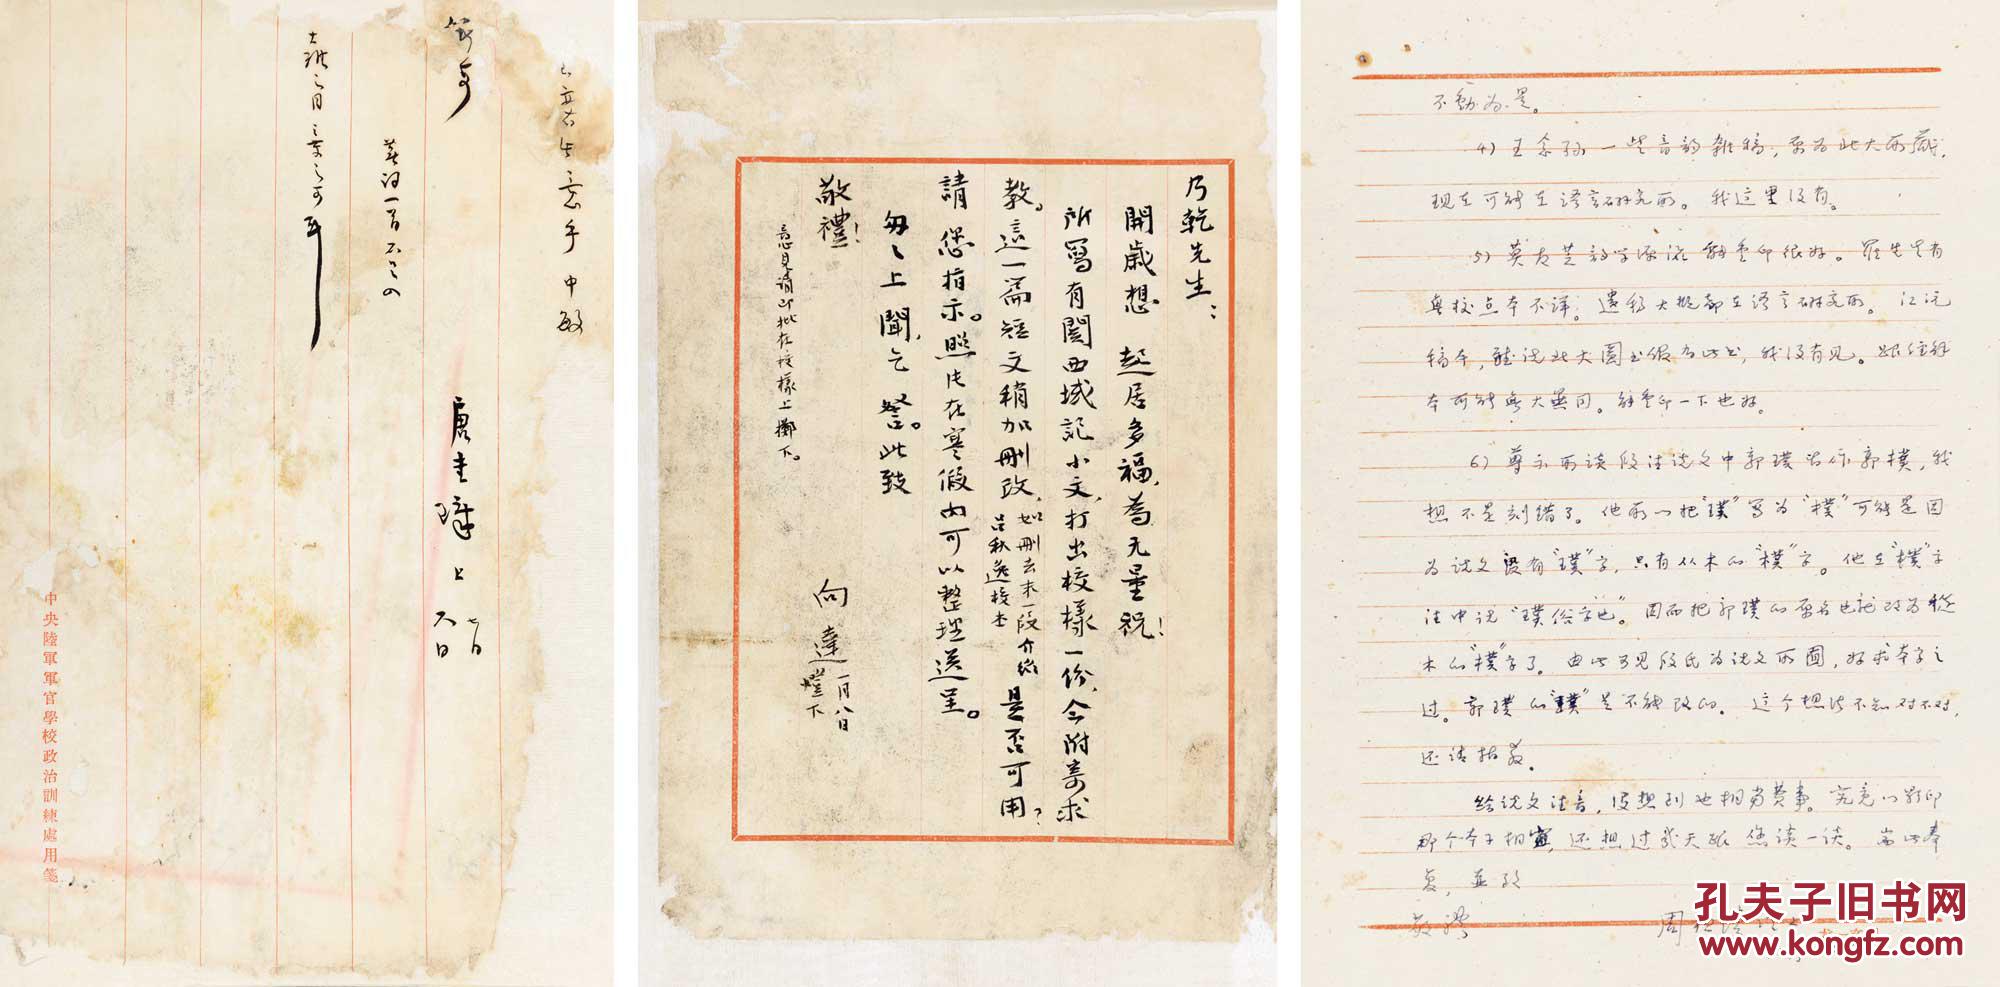 唐圭璋上
七月
六日
中央陸軍軍官學校政治訓練處用箋
乃乾先生：
開歲想 起居多福，為无量祝！
所寫有関西域記小文，打出校樣一份，今附寄求
教。這一篇短文稍加刪改，如刪去末一段介紹呂秋逸校本是否可用？
請 您指示。照片在寒假內可以整理送呈。
匆匆上聞，乞 詧。此致
敬禮！
向達 一月八日
燈下
意見請即批在校樣上擲下。
不動为是。
4）王念孙一些音韵雜稿，原为北大所藏，
现在可能在语言研究所。我这里没有。
5）莫友芝韵学源流能重印很好。罗先生有
無校点本不详；遗稿大概都在语言研究所。江沅
稿本，听说北大图书馆有此书，我没有见。
本可能無大異同。能重印一下也好。
6）尊示所谈段注说文中郭璞皆作郭樸，我
想不是刻错了。他所以把“璞”写为“樸”可能是因
为说文没有“璞”字，只有从木的“樸”字。他在“樸”字
注中说“璞俗字也”。因而把郭璞的原名也就改为從
木的“樸”字了。由此可见段氏为说文所囿，好求本字之
过。郭璞的“璞”是不能改的。这个想法不知对不对，
还请指教。
给说文注音，没想到也相当费事。究竟以影印
那个本子相宜，还想过几天跟您谈一谈。耑此奉
复，並致
敬礼
周祖谟
孔夫子旧书网
www.kongfz.com